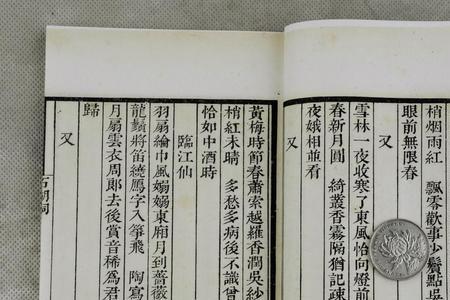 梢烟雨紅　飄零歡事少鬢點吳
眼前無限春
又
雪林一夜收寒了東風恰向燈前
春新月圓　綺叢香霧隔猶記疎
夜娥相並看
又
黃梅時節春蕭索越羅香潤吳紗
梢紅未晴　多愁多病後不識曾
恰如中酒時
臨江仙
羽扇綸巾風嫋嫋東廂月到薔薇
龍鬚將笛繞鳳字入箏飛　陶寫
月扇雲衣周郎去後賞音稀為君
歸
又
石湖詞